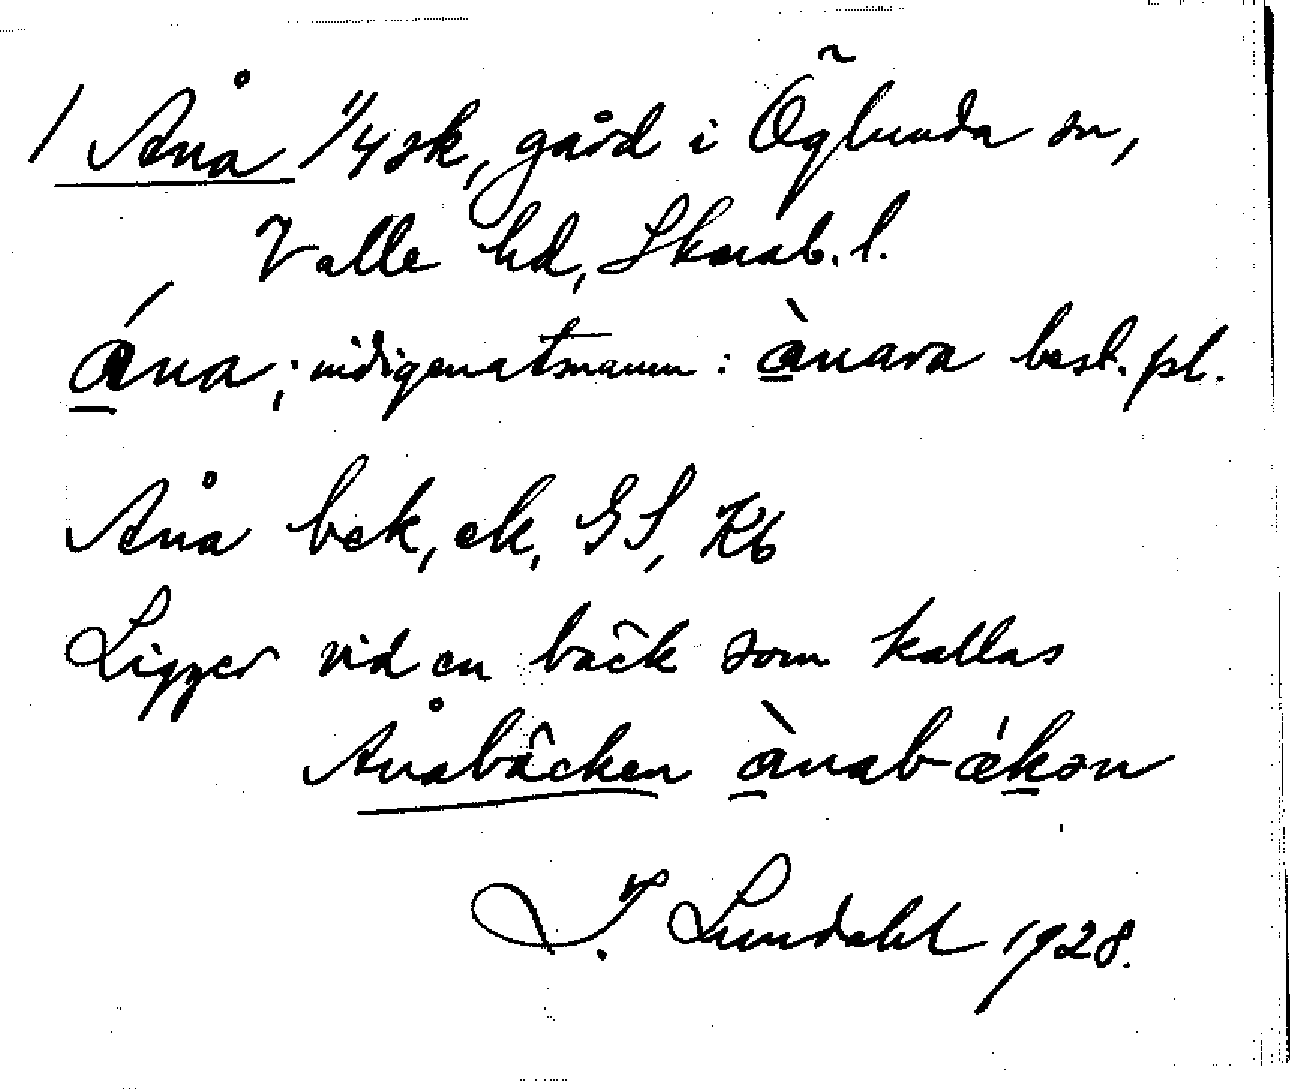 / Åna 1/4 sk, gård i Öglunda sn,
Valle hd, Skarab. l.
ána; indigenatsnamn: ànara best. pl.
Åna bek, ek, GS, Kb
Ligger vid en bäck som kallas
Ånabäcken ànab-ǽkən
I. Lundahl 1928.